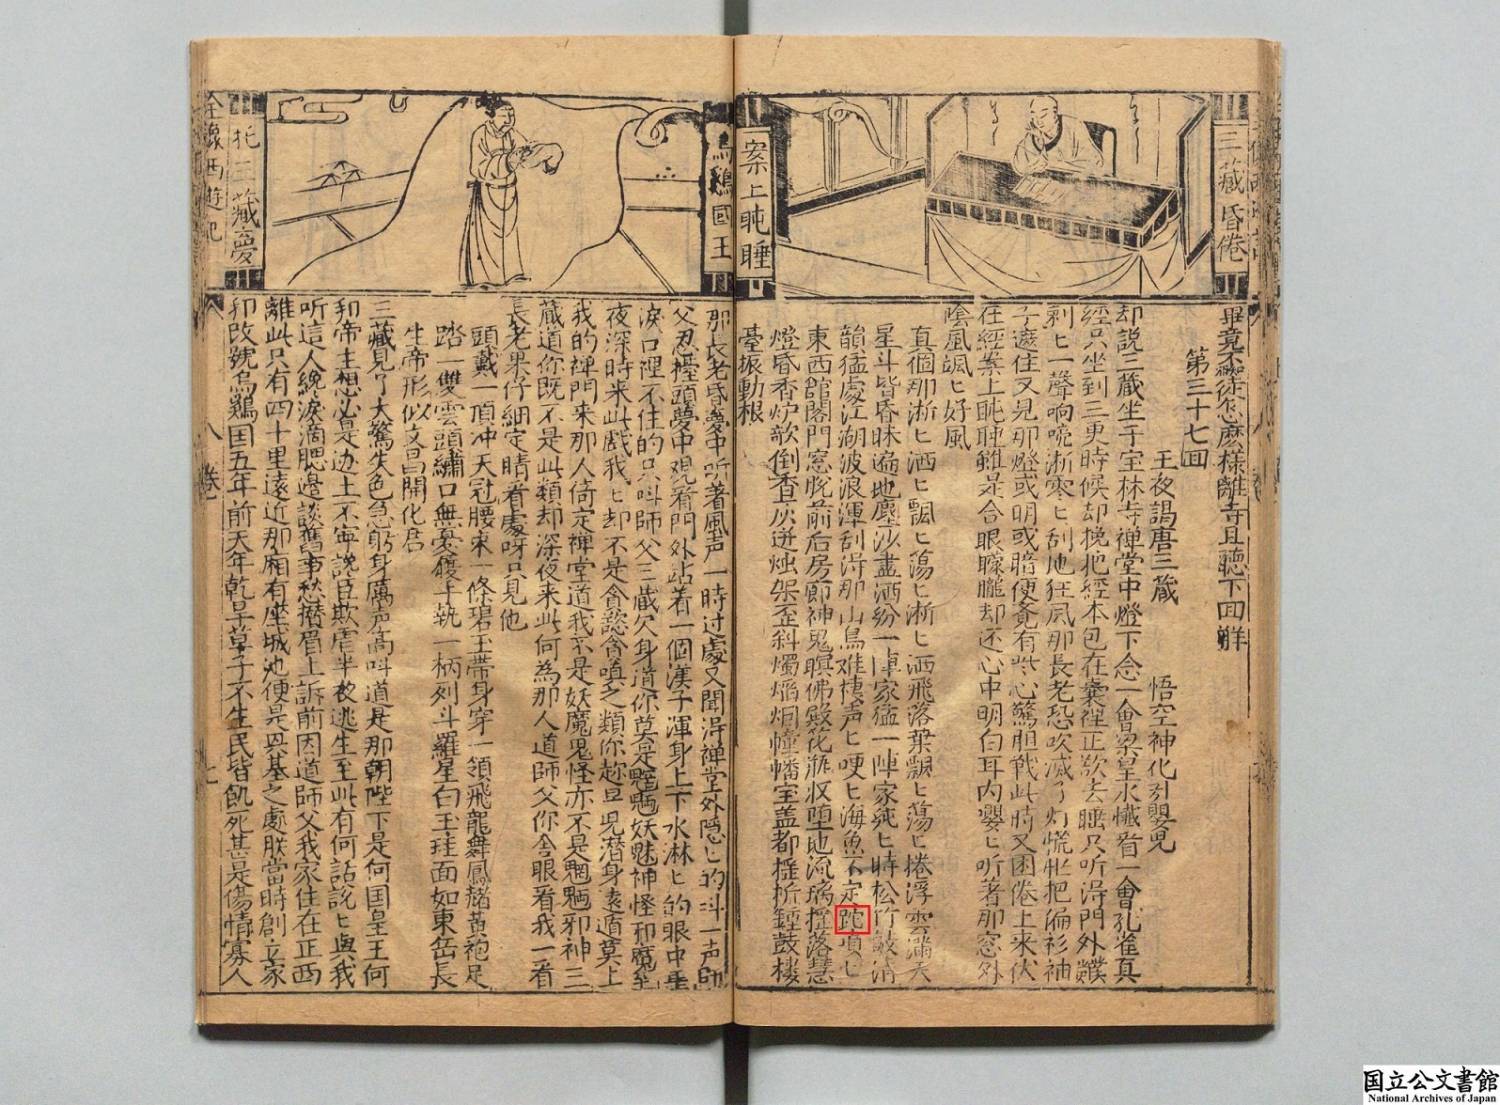 三藏昏倦
案上盹睡
畢竟不知後怎麽樣離寺且聽下回觧
第三十七回
王夜謁唐三藏　悟空神化引嬰児
却説三藏坐于宝林寺禅堂中燈下念一會梁皇水懺看一會孔雀真
経只坐到三更時候却𦂯把經本包在囊裡正欲去睡只听淂門外㩧
剌ヒ一聲响喨淅寒ヒ刮地狂风那長老恐吹滅了灯慌忙把偏衫袖
子遮住又見那燈或明或暗便覚有些心驚胆戰此時又困倦上来伏
在經案上盹睡雖是合眼矇朧却还心中明白耳内嚶ヒ听著那窓外
陰風颯ヒ好風
真個那淅ヒ洒ヒ飄ヒ蕩ヒ淅ヒ洒飛落葉飄ヒ蕩ヒ捲浮雲滿天
星斗皆昏昧遍地塵沙盡洒紛一陣家猛一陣家純ヒ時松竹敲清
韻猛處江湖波浪渾刮淂那山鳥难棲声ヒ哽ヒ海魚不定跎噴ヒ
東西館閣門窓脱前后房廊神鬼瞑佛殿花瓶収堕地琉璃摇落慧
燈昏香炉欹倒香灰迸烛架歪斜燭焰烱幢幡宝盖都摇折鍾鼓楼
臺振動根
烏鷄國王
托三藏夢
那長老昏夢中听著風声一時过處又聞淂禅堂外隠ヒ的呌一声師
父忽擡頭夢中观看門外站着一個漢子渾身上下水淋ヒ的眼中垂
淚口裡不住的只呌師父三藏欠身道你莫是魍魎妖魅神怪邪魔至
夜深時来此戯我ヒ却不是貪慾貪嗔之類你趂早児潜身遠遁莫上
我的禅門来那人倚定禅堂道我不是妖魔鬼怪亦不是魍魎邪神三
藏道你既不是此類却深夜来此何為那人道師父你舍眼看我一看
長老果仔細定睛看處呀只見他
頭戴一頂冲天冠腰束一條碧玉帶身穿一領飛龍舞鳳赭黃袍足
踏一雙雲頭繡口無憂鑁手執一柄列斗羅星白玉珪面如東岳長
生帝形似文昌開化君
三藏見了大驚失色急躬身厲声高呌道是那朝陛下是何国皇王何
邦帝主想必是边土不寕讒臣欺虐半夜逃生至此有何話説ヒ與我
听這人纔淚滴腮邊談舊事愁攅眉上訴前因道師父我家住在正西
離此只有四十里遠近那廂有座城池便是興基之處朕當時創立家
邦改號烏鷄国五年前天年乾旱草子不生民皆飢死甚是傷情寡人
全像西遊記
八卷
七
国立公文書館
National Archives of Japan